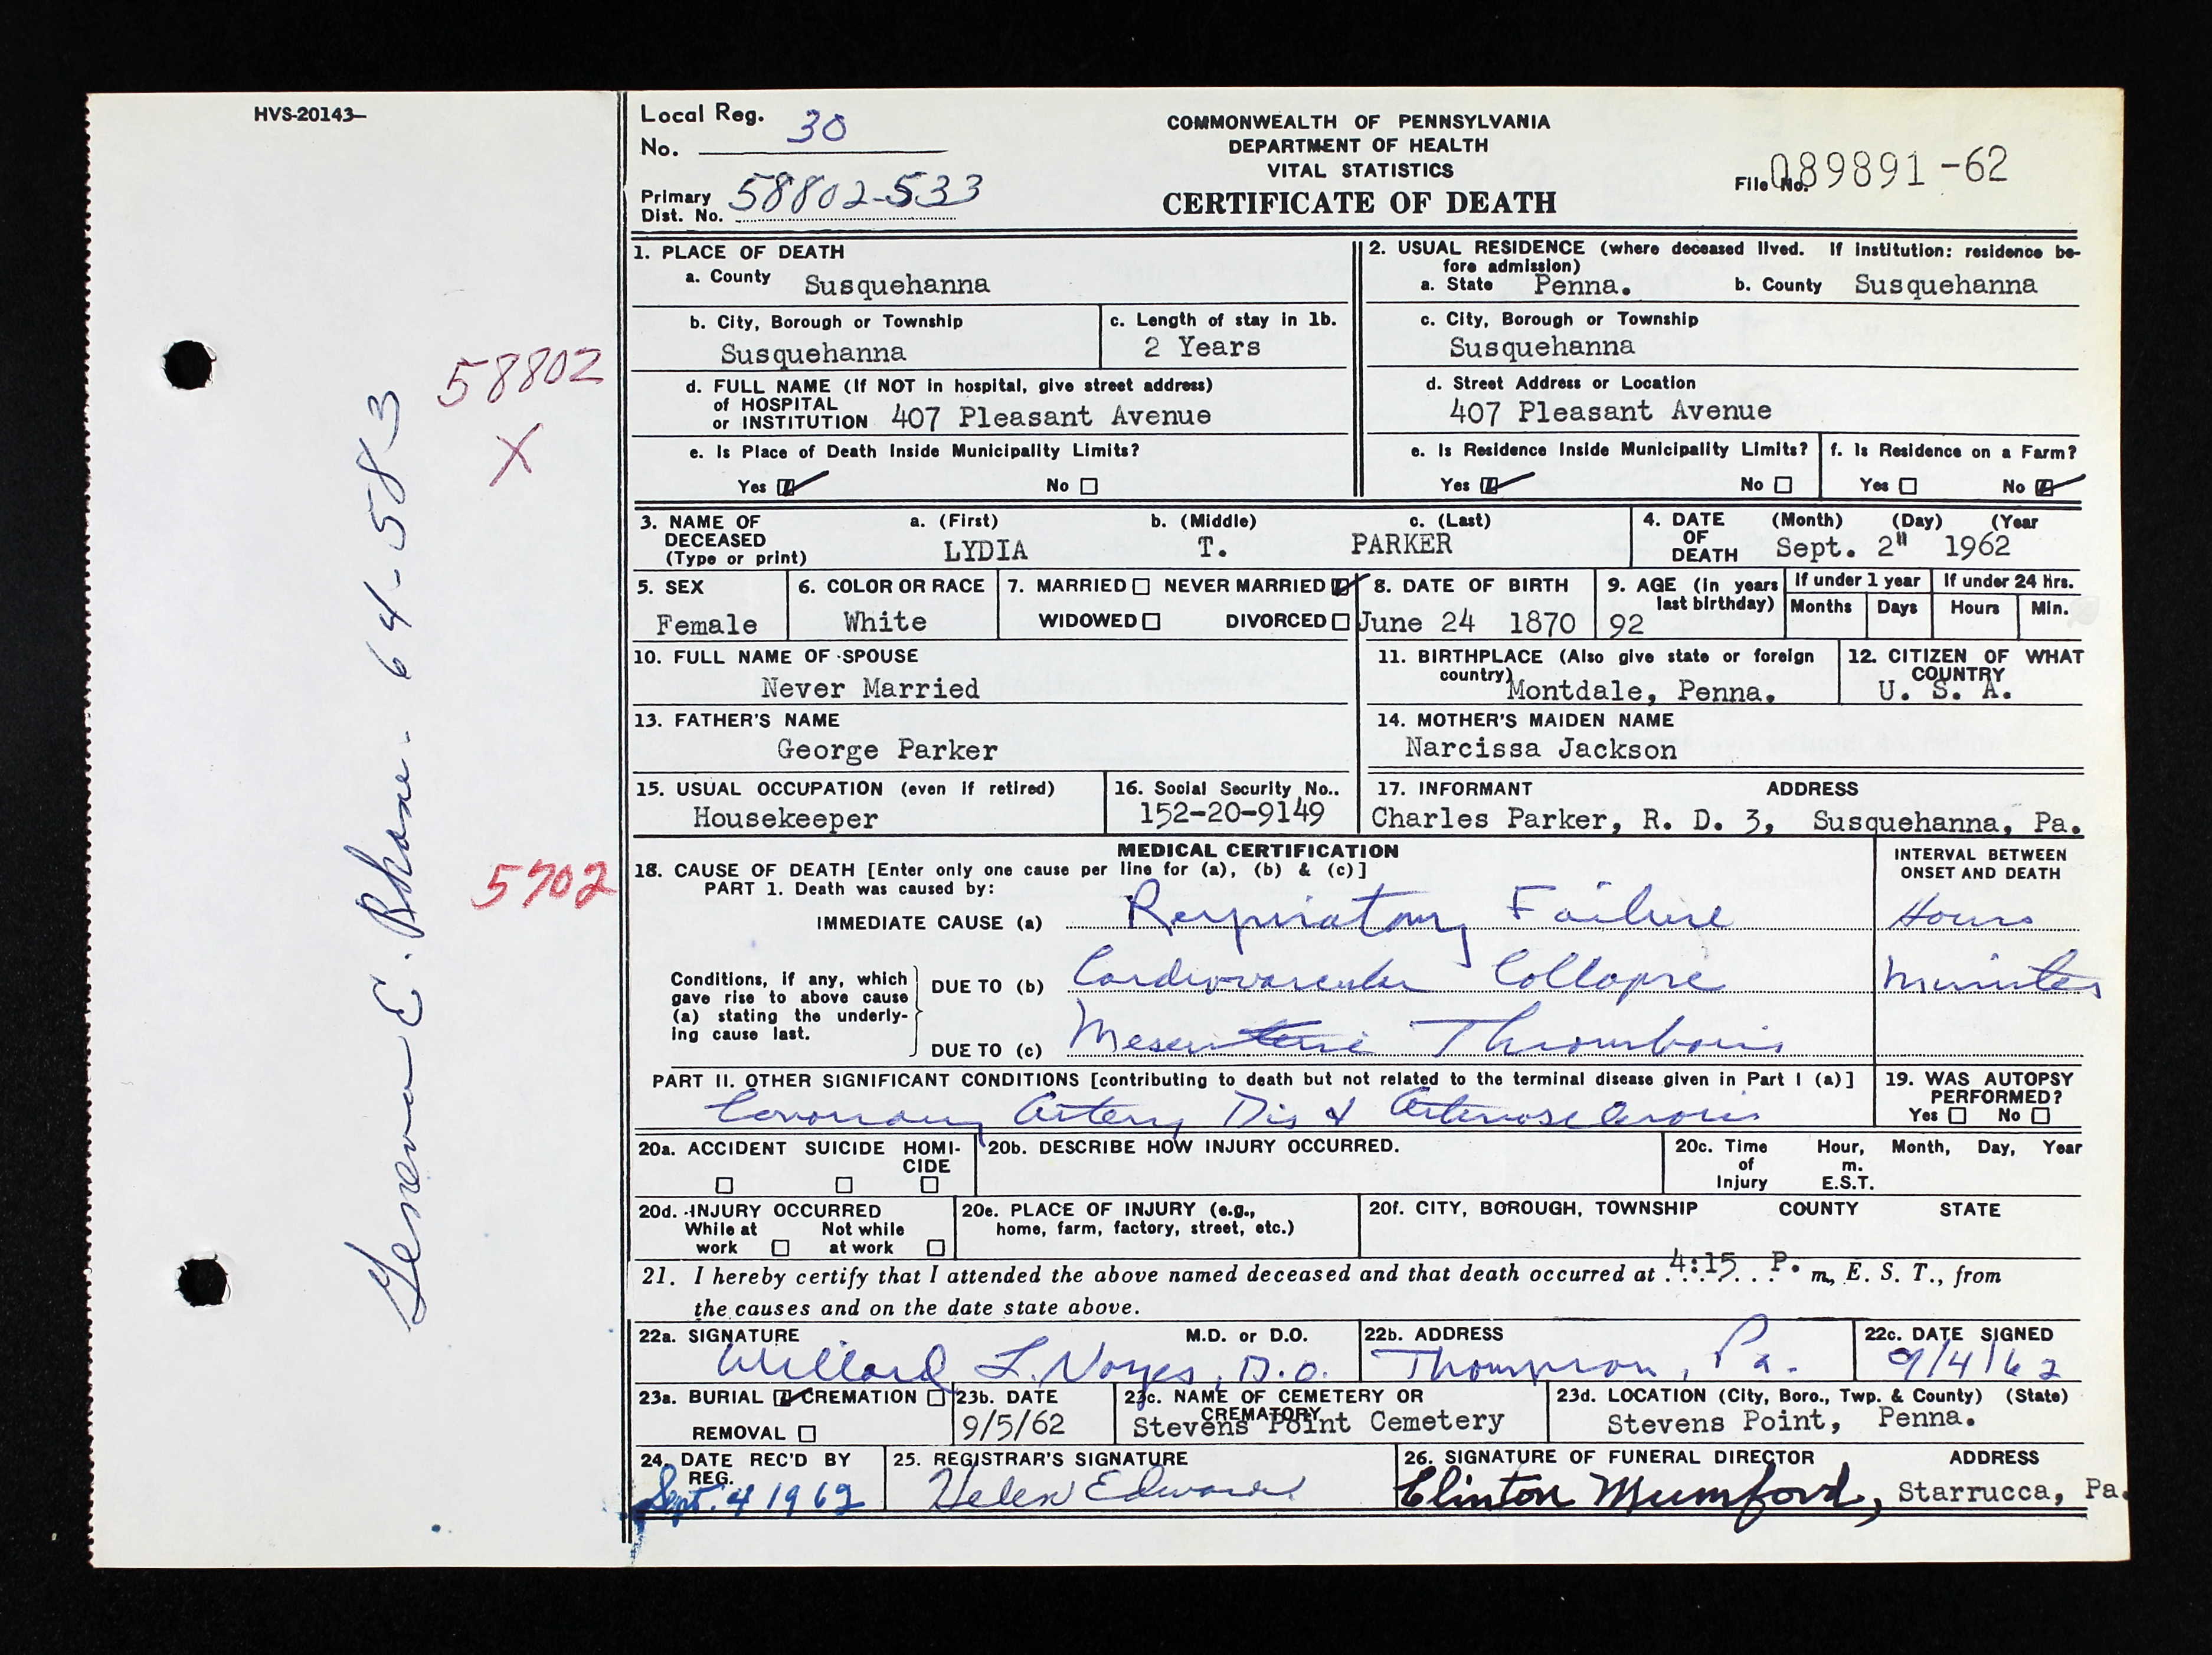 HVS-20143-
58802
X
5702
Geneva E. Rhone - 64-583
Local Reg.
No. 30
Primary
Dist. No. 58802-533
COMMONWEALTH OF PENNSYLVANIA
DEPARTMENT OF HEALTH
VITAL STATISTICS
CERTIFICATE OF DEATH
File No. 089891-62
1. PLACE OF DEATH
a. County Susquehanna
b. City, Borough or Township
Susquehanna
c. Length of stay in 1b.
2 Years
d. FULL NAME (If NOT in hospital, give street address)
of HOSPITAL
or INSTITUTION 407 Pleasant Avenue
e. Is Place of Death Inside Municipality Limits?
Yes No
2. USUAL RESIDENCE (where deceased lived. If institution: residence be-
fore admission)
a. State Penna. b. County Susquehanna
c. City, Borough or Township
Susquehanna
d. Street Address or Location
407 Pleasant Avenue
e. Is Residence Inside Municipality Limits?
Yes No
f. Is Residence on a Farm?
Yes No
3. NAME OF
DECEASED
(Type or print)
a. (First) b. (Middle) c. (Last)
LYDIA T. PARKER
4. DATE
OF
DEATH
(Month) (Day) (Year
Sept. 2" 1962
5. SEX
Female
6. COLOR OR RACE
White
7. MARRIED NEVER MARRIED
WIDOWED DIVORCED
8. DATE OF BIRTH
June 24 1870
9. AGE (in years
last birthday)
92
If under 1 year
Months Days
If under 24 Hrs.
Hours Min.
10. FULL NAME OF SPOUSE
Never Married
11. BIRTHPLACE (Also give state or foreign
country)
Montdale, Penna.
12. CITIZEN OF WHAT
COUNTRY
U. S. A.
13. FATHER'S NAME
George Parker
14. MOTHER'S MAIDEN NAME
Narcissa Jackson
15. USUAL OCCUPATION (even if retired)
Housekeeper
16. Social Security No..
152-20-9149
17. INFORMANT ADDRESS
Charles Parker, R. D. 3, Susquehanna, Pa.
MEDICAL CERTIFICATION
18. CAUSE OF DEATH [Enter only one cause per line for (a), (b) & (c)]
PART 1. Death was caused by:
INTERVAL BETWEEN
ONSET AND DEATH
IMMEDIATE CAUSE (a) Respiratory Failure Hours
Conditions, if any, which
gave rise to above cause
(a) stating the underly-
ing cause last.
DUE TO (b) Cardiovascular Collapse Minutes
DUE TO (c) Mesenteric Thrombosis
PART II. OTHER SIGNIFICANT CONDITIONS [contributing to death but not related to the terminal disease given in Part I (a)]
Coronary Artery Dis & Arteriosclerosis
19. WAS AUTOPSY
PERFORMED?
Yes No
20a. ACCIDENT SUICIDE HOMI-
CIDE
20b. DESCRIBE HOW INJURY OCCURRED.
20c. Time
of
Injury
Hour, Month, Day, Year
m.
E.S.T.
20d. INJURY OCCURRED
While at
work
Not while
at work
20e. PLACE OF INJURY (e.g.,
home, farm, factory, street, etc.)
20f. CITY, BOROUGH, TOWNSHIP COUNTY STATE
21. I hereby certify that I attended the above named deceased and that death occurred at 4:15 P. m., E. S. T., from
the causes and on the date state above.
22a. SIGNATURE M.D. or D.O.
Willard L. Noyes, D.O.
22b. ADDRESS
Thompson, Pa.
22c. DATE SIGNED
9/4/62
23a. BURIAL CREMATION
REMOVAL
23b. DATE
9/5/62
23c. NAME OF CEMETERY OR
CREMATORY
Stevens Point Cemetery
23d. LOCATION (City, Boro., Twp. & County) (State)
Stevens Point, Penna.
24. DATE REC'D BY
REG.
Sept. 4 1962
25. REGISTRAR'S SIGNATURE
Helen Edwards
26. SIGNATURE OF FUNERAL DIRECTOR ADDRESS
Clinton Mumford, Starrucca, Pa.